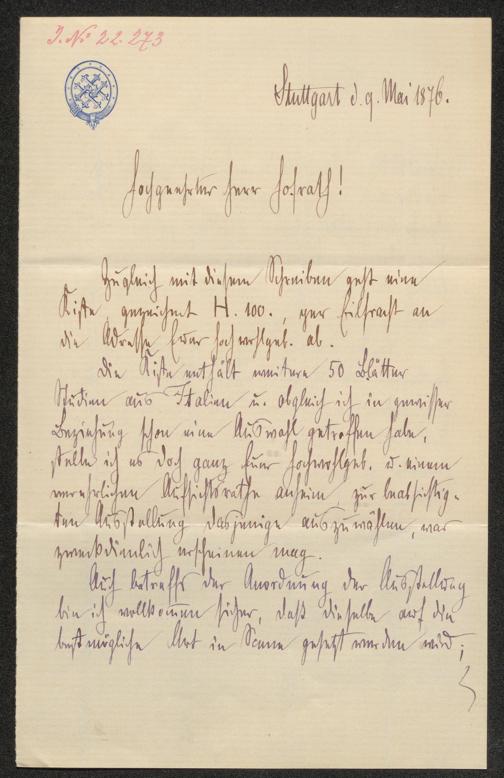 J. No 22.273
Stuttgart d. 9. Mai 1876.
Hochgeehrter Herr Hofrath!
Zugleich mit diesem Schreiben geht eine
Kiste, gezeichnet H. 100., per Eilfracht an
die Adresse Euer Hochwohlgeb. ab.
Die Kiste enthält weitere 50 Blätter
Studien aus Italien u. obgleich ich in gewisser
Beziehung schon eine Auswahl getroffen habe,
stelle ich es doch ganz Euer Hochwohlgeb. u. einem
verehrlichen Aufsichtsrathe anheim, zur beabsichtig-
ten Ausstellung dasjenige auszuwählen, was
zweckdienlich erscheinen mag.
Auch betreffs der Anordnung der Ausstellung
bin ich vollkommen sicher, daß dieselbe auf die
bestmögliche Art in Scene gesetzt werden wird;